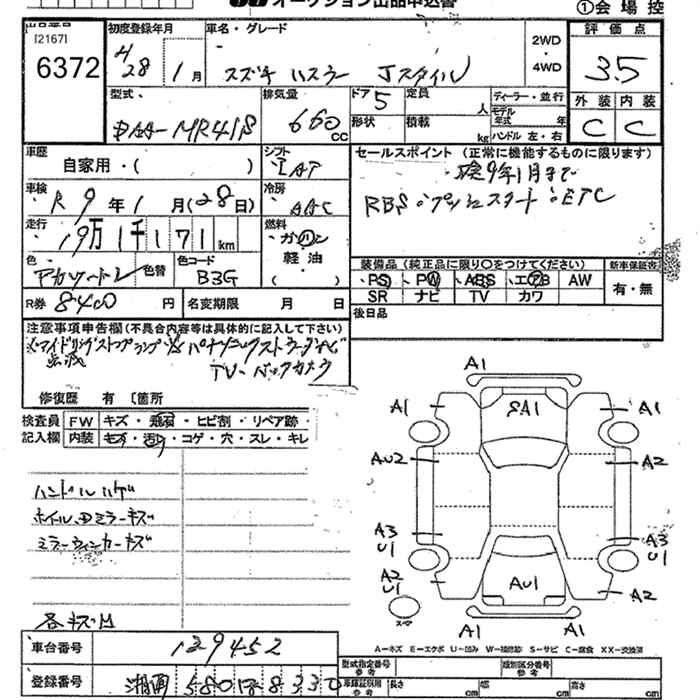 オークション出品申込書 ①会場控
出品番号 初度登録年月 車名・グレード 2WD 評価点
[2167] 6372 H28年 1月 スズキ ハスラー Jスタイル 4WD 3.5
型式 排気量 ドア 5 定員 人 ディーラー・並行 外装 内装
DAA-MR41S 660 CC 形状 積載 kg モデル年式 年 C C
ハンドル 左・右
車歴 自家用・( ) シフト IAT セールスポイント (正常に機能するものに限ります)
車検 R9年 1月(28日) 冷房 AAC 検9年1月まで
RBS・プッシュスタート・ETC
走行 19万1千171km 燃料 ガソリン 軽油 ( )
色 色替 色コード B3G 装備品 (純正品に限り○をつけてください) 新車保証書
PS PW ABS エアB AW 有・無
R券 8400円 名変期限 月 日 SR ナビ TV カワ
後日品
注意事項申告欄 (不具合内容等は具体的に記入して下さい)
アイドリングストップランプ パナソニックストラーダナビ
点滅 TV・バックカメラ
修復歴 有 〔箇所
検査員 FW キズ・飛石・ヒビ割・リペア跡・
記入欄 内装 キズ・汚れ・コゲ・穴・スレ・キレ
ハンドルハゲ
ホイール、ミラーキズ
ミラーウィンカーキズ
各キズM
A1
A1 SA1 A1
AU2 A2
A3 U1 A3 U1
A2 U1 AU1 A2
スペア A1 A1
A-キズ E-エクボ U-凹み W-補修跡 S-サビ C-腐食 XX-交換済
車台番号 129452
登録番号 湘南 580 ほ 8330
型式指定番号 参考 類別区分番号 参考
車庫証明用 参考 長さ cm 幅 cm 高さ cm